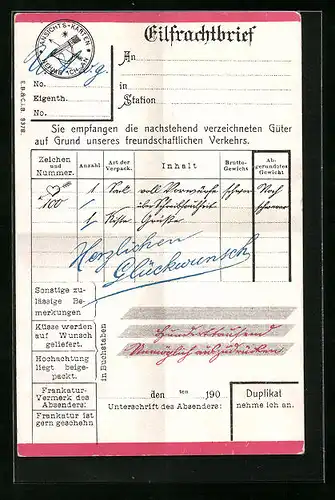 ANSICHTS-KARTEN
Eilfrachtbrief
An
No.
in
Eigenth.
Station
No.
E.B.& C.i.B. 9376.
Sie empfangen die nachstehend verzeichneten Güter
auf Grund unseres freundschaftlichen Verkehrs.
Zeichen und Nummer. Anzahl Art der Verpack. Inhalt Brutto-Gewicht Ab-gerundetes Gewicht
1 Sack voll schwer Noch
100 1 schwerer
1 Kiste Grüße
Herzlichen
Glückwunsch
Sonstige zu-
lässige Be-
merkungen
Küsse werden
auf Wunsch
geliefert.
Hochachtung
liegt beige-
packt.
in Buchstaben
Hunderttausend
Unmöglich auszudrücken
Frankatur-
Vermerk des
Absenders:
Frankatur ist
gern geschehn
den ten 190
Unterschrift des Absenders:
Duplikat
nehme ich an.